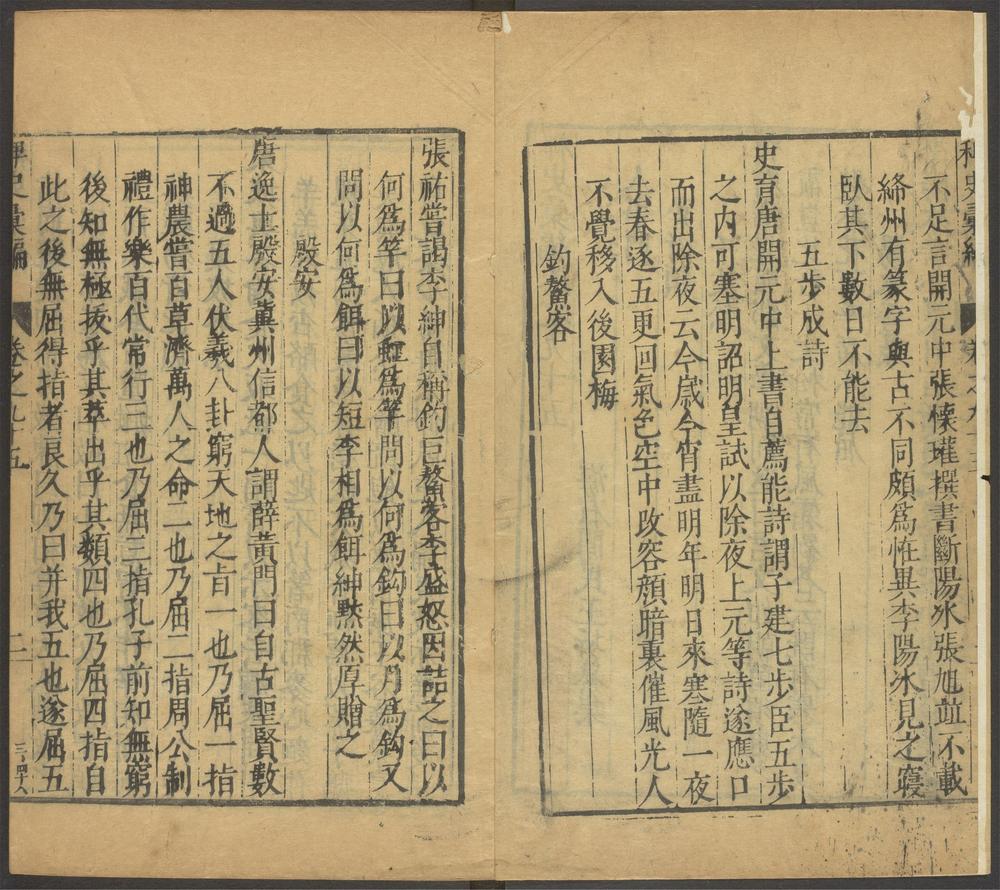 不足言開元中張懷瓘撰書斷陽冰張旭並不載
絳州有篆字與古不同頗爲恠異李陽冰見之寢
臥其下數日不能去
五步成詩
史育唐開元中上書自薦能詩謂子建七步臣五步
之内可塞明詔明皇試以除夜上元等詩遂應口
而出除夜云今歲今宵盡明年明日來寒隨一夜
去春逐五更回氣色空中改容顔暗裏催風光人
不覺移入後園梅
釣鰲客
張祐嘗謁李紳自稱釣巨鰲客李盛怒因詰之曰以
何爲竿曰以虹爲竿問以何爲鈎曰以月爲鈎又
問以何爲餌曰以短李相爲餌紳黙然厚贈之
殷安
唐逸士殷安冀州信都人謂薛黃門曰自古聖賢數
不過五人伏羲八卦窮天地之旨一也乃屈一指
神農嘗百草濟萬人之命二也乃屈二指周公制
禮作樂百代常行三也乃屈三指孔子前知無窮
後知無極拔乎其萃出乎其類四也乃屈四指自
此之後無屈得指者良久乃曰并我五也遂屈五
稗史彙編 卷之九十五 二